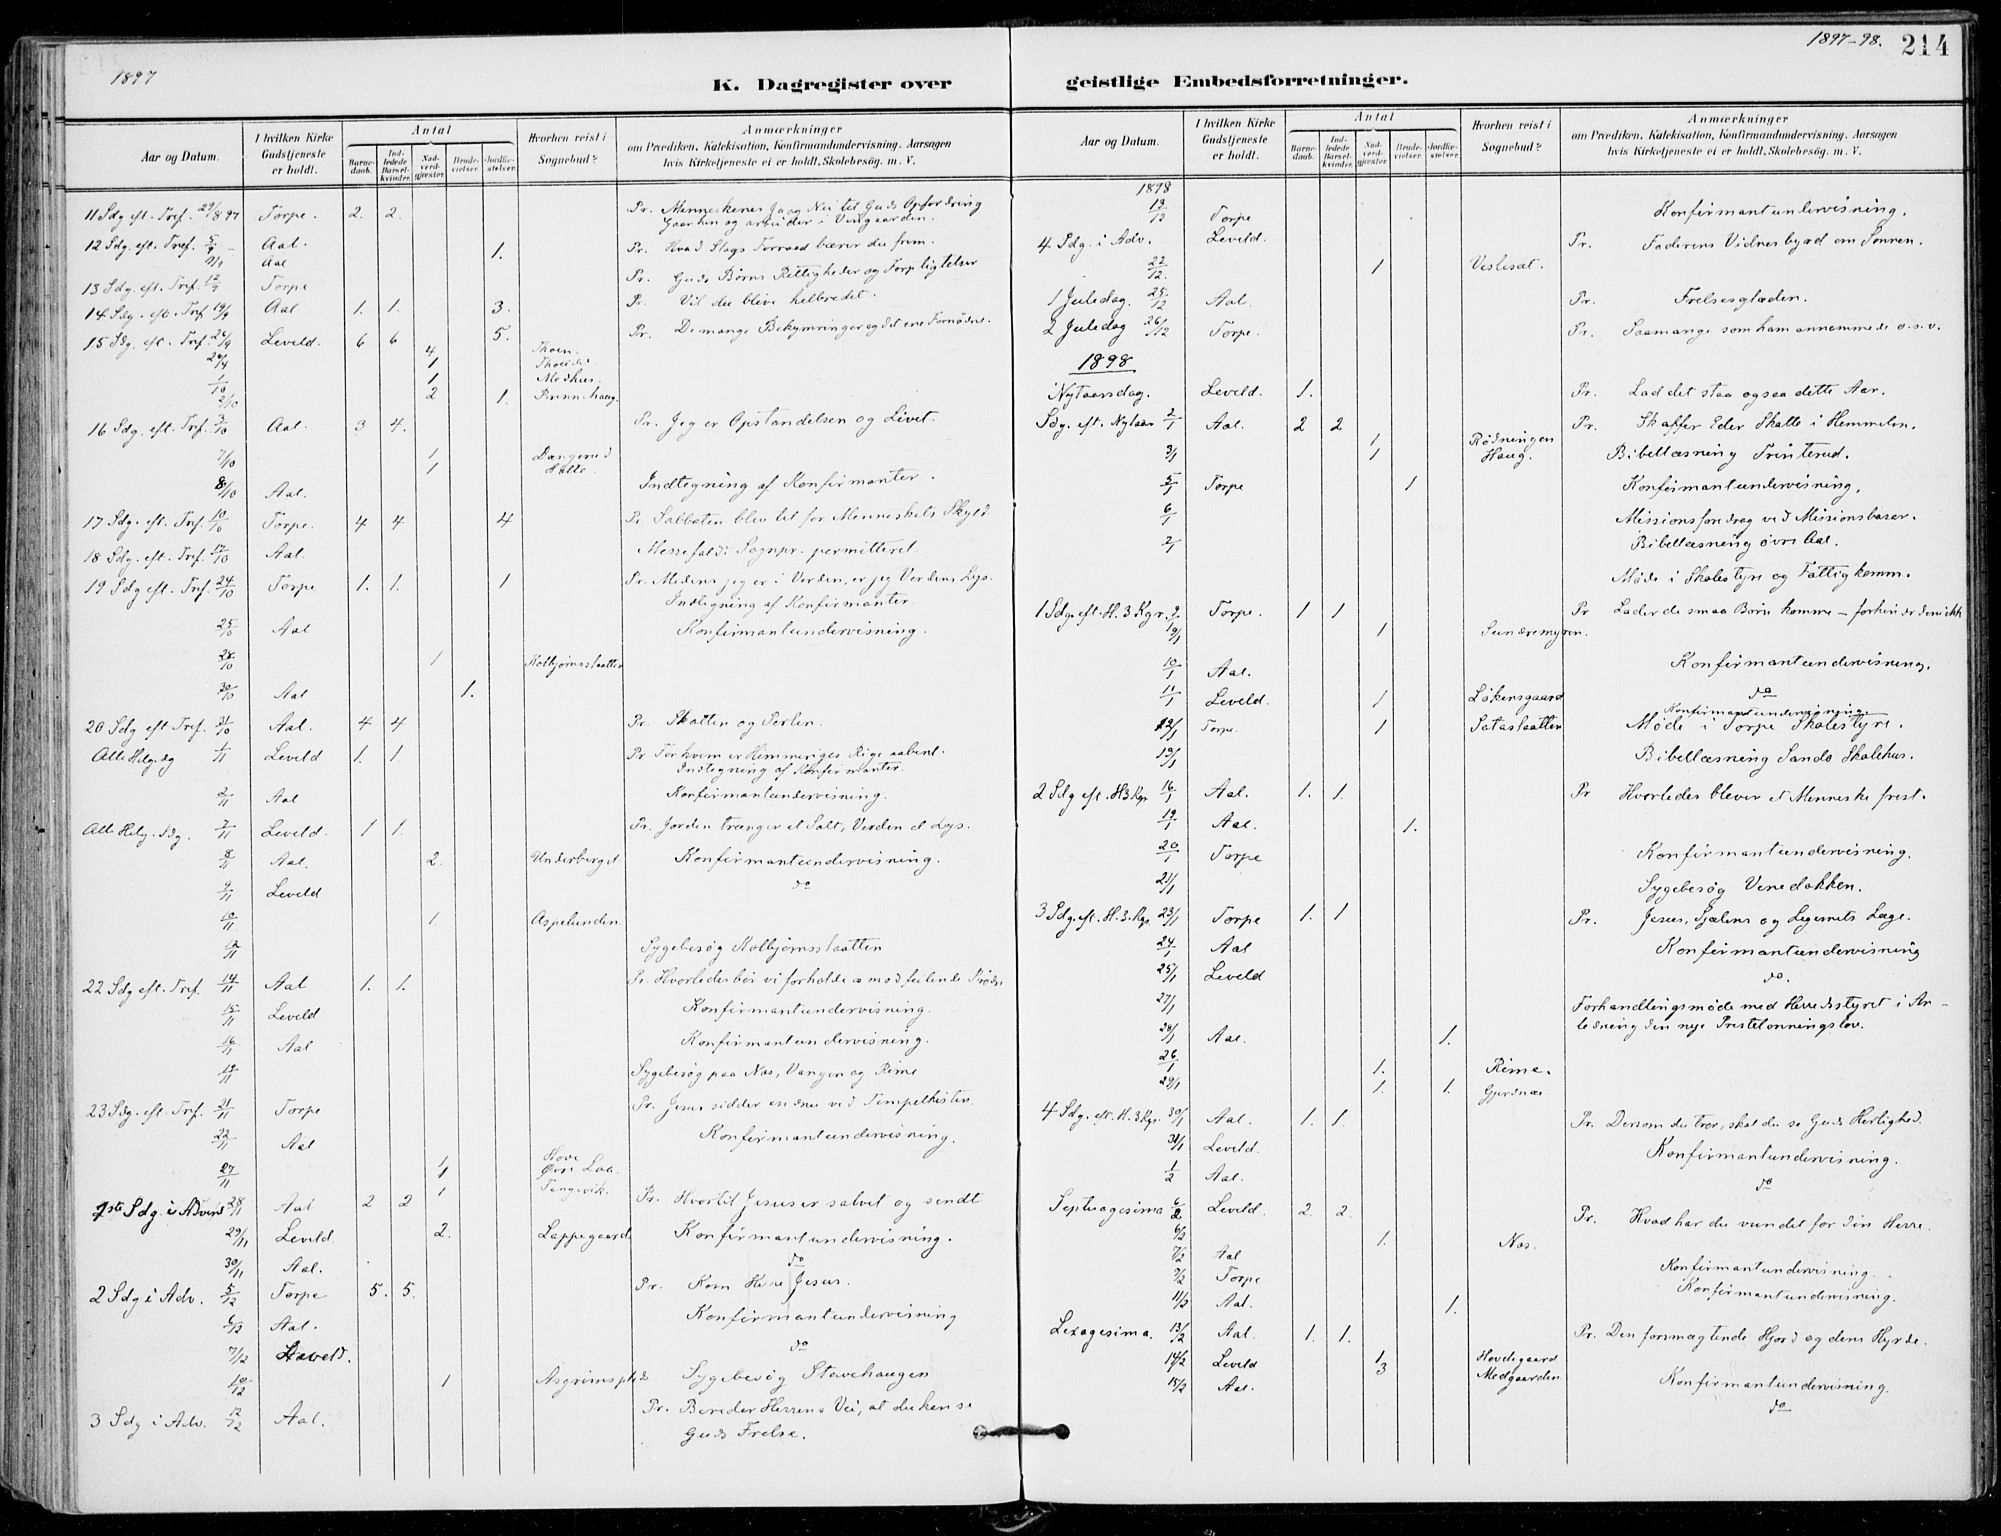 1897
K. Dagregister over
Aar og Datum.
I hvilken Kirke Gudstjeneste er holdt.
Antal
Barnedaab.
Indledede Barselkvinder.
Nadverdgjæster.
Brudevielser.
Jordfæstelser.
Hvorhen reist i Sognebud?
Anmærkninger
om Prædiken, Katekisation, Konfirmandundervisning, Aarsagen
hvis Kirketjeneste ei er holdt, Skolebesög. m. V.
11 Sdg eft. Tref. 29/8 97 Torpe. 2. 2. Pr. Menneskenes Ja og Nei til Guds Opfordring
Gaa hen og arbeider i Vingaarden.
12 Sdg. eft. Tref. 5/9 Aal. Pr. Hvad Slags Forraad bærer du frem.
9/9 Aal 1.
13 Sdg. eft. Tref. 12/9 Torpe Pr. Guds Börns Rettigheder og Forpligtelser
14 Sdg. eft. Tref 19/9 Aal 1. 1. 3. Pr. Vil du blive helbredet.
15 Sdg. eft. Tref 26/9 Leveld. 6 6 5. Pr. De mange Bekymringer og det ene Fornödne.
4 Thoen.
1
1/10 1 Medhus.
2/10 2 1. Brennhaug.
16 Sdg. eft. Tref. 3/10 Aal. 3 4. Pr. Jeg er Opstandelsen og Livet.
7/10 1 Dængerud
1 Holto.
8/10 Aal. Indtegning af Konfirmanter.
17 Sdg. eft. Tref. 10/10 Torpe. 4 4 4 Pr. Sabbaten blev til for Menneskets Skyld
18 Sdg. eft. Tref. 17/10 Aal. Messefald. Sognpr. permitteret
19 Sdg eft. Tref. 24/10 Torpe 1. 1. 1 Pr. Medens jeg er i Verden, er jeg Verdens Lys.
Indtegning af Konfirmanter.
25/10 Aal Konfirmantundervisning.
28/10 1 Kolbjörnsslaatten
30/10 Aal 1.
20 Sdg eft Tref. 31/10 Aal. 4 4 Pr. Skatten og Perlen.
Alle Helg. dg 1/11 Leveld 1. 1. Pr For hvem er Himmeriges Rige aabent.
Indtegning af Konfirmanter.
2/11 Aal Konfirmantundervisning.
Alle Helg. Sdg. 7/11 Leveld. 1 1. Pr. Jorden trænger et Salt, Verden et Lys.
8/11 Aal. 2. Underberget Konfirmantundervisning.
9/11 Leveld do
10/11 1. Aspelunden.
Sygebesög Kolbjörnsslaatten
22 Sdg eft. Tref. 14/11 Aal 1. 1. Pr. Hvorledes bör vi forholde os mod feilende Brödre
15/11 Leveld Konfirmantundervisning.
16/11 Aal Konfirmantundervisning.
Sygebesög paa Nos, Vangen og Rime
23 Sdg. eft. Tref. 21/11 Torpe Pr. Jesus sidder endnu ved Tempelkisten.
22/11 Aal Konfirmantundervisning.
27/11 1 Hove
1 Övre Laa.
1 Tangevik.
1ste Sdg. i Advent 28/11 Aal 2 2 Pr. Hvortil Jesus er salvet og sendt
29/11 Leveld. 2. Lappegaard. Konfirmantundervisning.
30/11 Aal. do
2 Sdg i Adv. 5/12 Torpe 5. 5. Pr. Kom Herre Jesus.
6/12 Aal. Konfirmantundervisning
7/12 Leveld. do
10/12 1 Asgrimsplads Sygebesög Stavehaugen
3 Sdg i Adv. 12/12 Aal. Pr. Bereder Herrens Vei, at du kan se
Guds Frelse.
1897-98.
214
geistlige Embedsforretninger.
Aar og Datum.
I hvilken Kirke Gudstjeneste er holdt.
Antal
Barnedaab.
Indledede Barselkvinder.
Nadverdgjæster.
Brudevielser.
Jordfæstelser.
Hvorhen reist i Sognebud?
Anmærkninger
om Prædiken, Katekisation, Konfirmandundervisning, Aarsagen
hvis Kirketjeneste ei er holdt, Skolebesög. m. V.
1898
13/12 Torpe Konfirmantundervisning.
4 Sdg. i Adv. Leveld. Pr. Faderens Vidnesbyrd om Sonnen.
22/12. 1 Veslesæt.
1 Juledag. 25/12 Aal. Pr. Frelsesglæden.
2 Juledag 26/12 Torpe. Pr. Saamange som ham annammede o.s.v.
1898
Nytaarsdag. Leveld. 1. Pr. Lad det staa ogsaa dette Aar.
Sdg. eft. Nytaar 2/1 Aal. 2 2 Pr. Skaffer Eder Skatte i Himmelen.
1 Rödningen
3/1 1 Haug. Bibellæsning Trinterud.
5/1 Torpe 1 Konfirmantundervisning.
6/1 Missionsforedrag ved Missionsbasar.
Bibellæsning övre Aal.
Möde i Skolestyre og Fattigkomm.
1 Sdg. eft. H. 3 Kgr. 9/1 Torpe. 1 1 Pr Lader de smaa Börn komme - forhindr dem ikke
9/1 1 Sundremyren.
10/1 Aal. Konfirmantundervisning.
11/1 Leveld. 1 Lökensgaard do
Konfirmantundervisning.
12/1 Torpe. 1 Sataslaatten Möde i Torpe Skolestyre.
13/1 Bibellæsning Sando Skolehus.
2 Sdg eft. H3Kgr 16/1 Aal. 1. 1. Pr Hvorledes bliver et Menneske frelst.
19/1 Aal. 1.
20/1 Torpe Konfirmantundervisning.
21/1 Sygebesög Venedokken.
3 Sdg. eft. H. 3. Kgr. 23/1 Torpe 1. 1 Pr. Jesus, Sjælens og Legemets Læge.
24/1 Aal Konfirmantundervisning
25/1 Leveld do.
27/1 Forhandlingsmöde med Herredsstyret i An-
28/1 Aal. 1. ledning den nye Prestelonningslov.
26/1 1. Rime.
29/1 1. 1. Gjerdnæs
4 Sdg. eft. H. 3 Kgr. 30/1 Aal. 1. 1. Pr. Dersom du tror, skal du se Guds Herlighed.
31/1 Leveld. Konfirmantundervisning.
1/2 Aal. do
Septuagesima 6/2 Leveld. 2. 2. Pr. Hvad har du vundet for din Herre.
6/2 1. Nos.
7/2 Aal Konfirmantundervisning.
9/2 Torpe Konfirmantundervisning.
11/2 Aal. 1.
Sexagesima. 13/2 Aal. 1. 1. Pr. Den forsmægtende Hjord og dens Hyrde.
14/2 Leveld 1 Hovdegaard
3 Medgaarden Konfirmantundervisning.
15/2 Aal. do